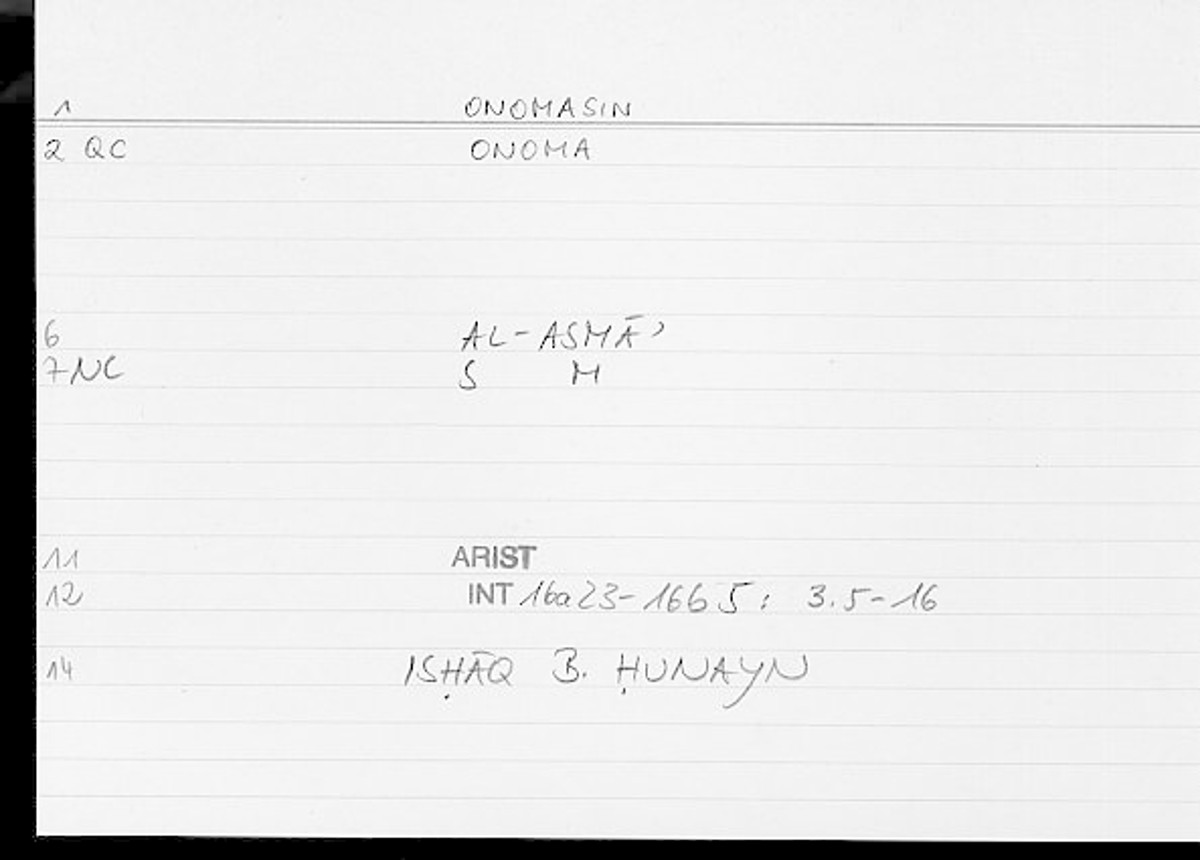 1 ONOMASIN
2 QC ONOMA
6 AL-ASMĀʾ
7 NC S M
11 ARIST
12 INT 16a23-16b5: 3.5-16
14 ISḤĀQ B. ḤUNAYN